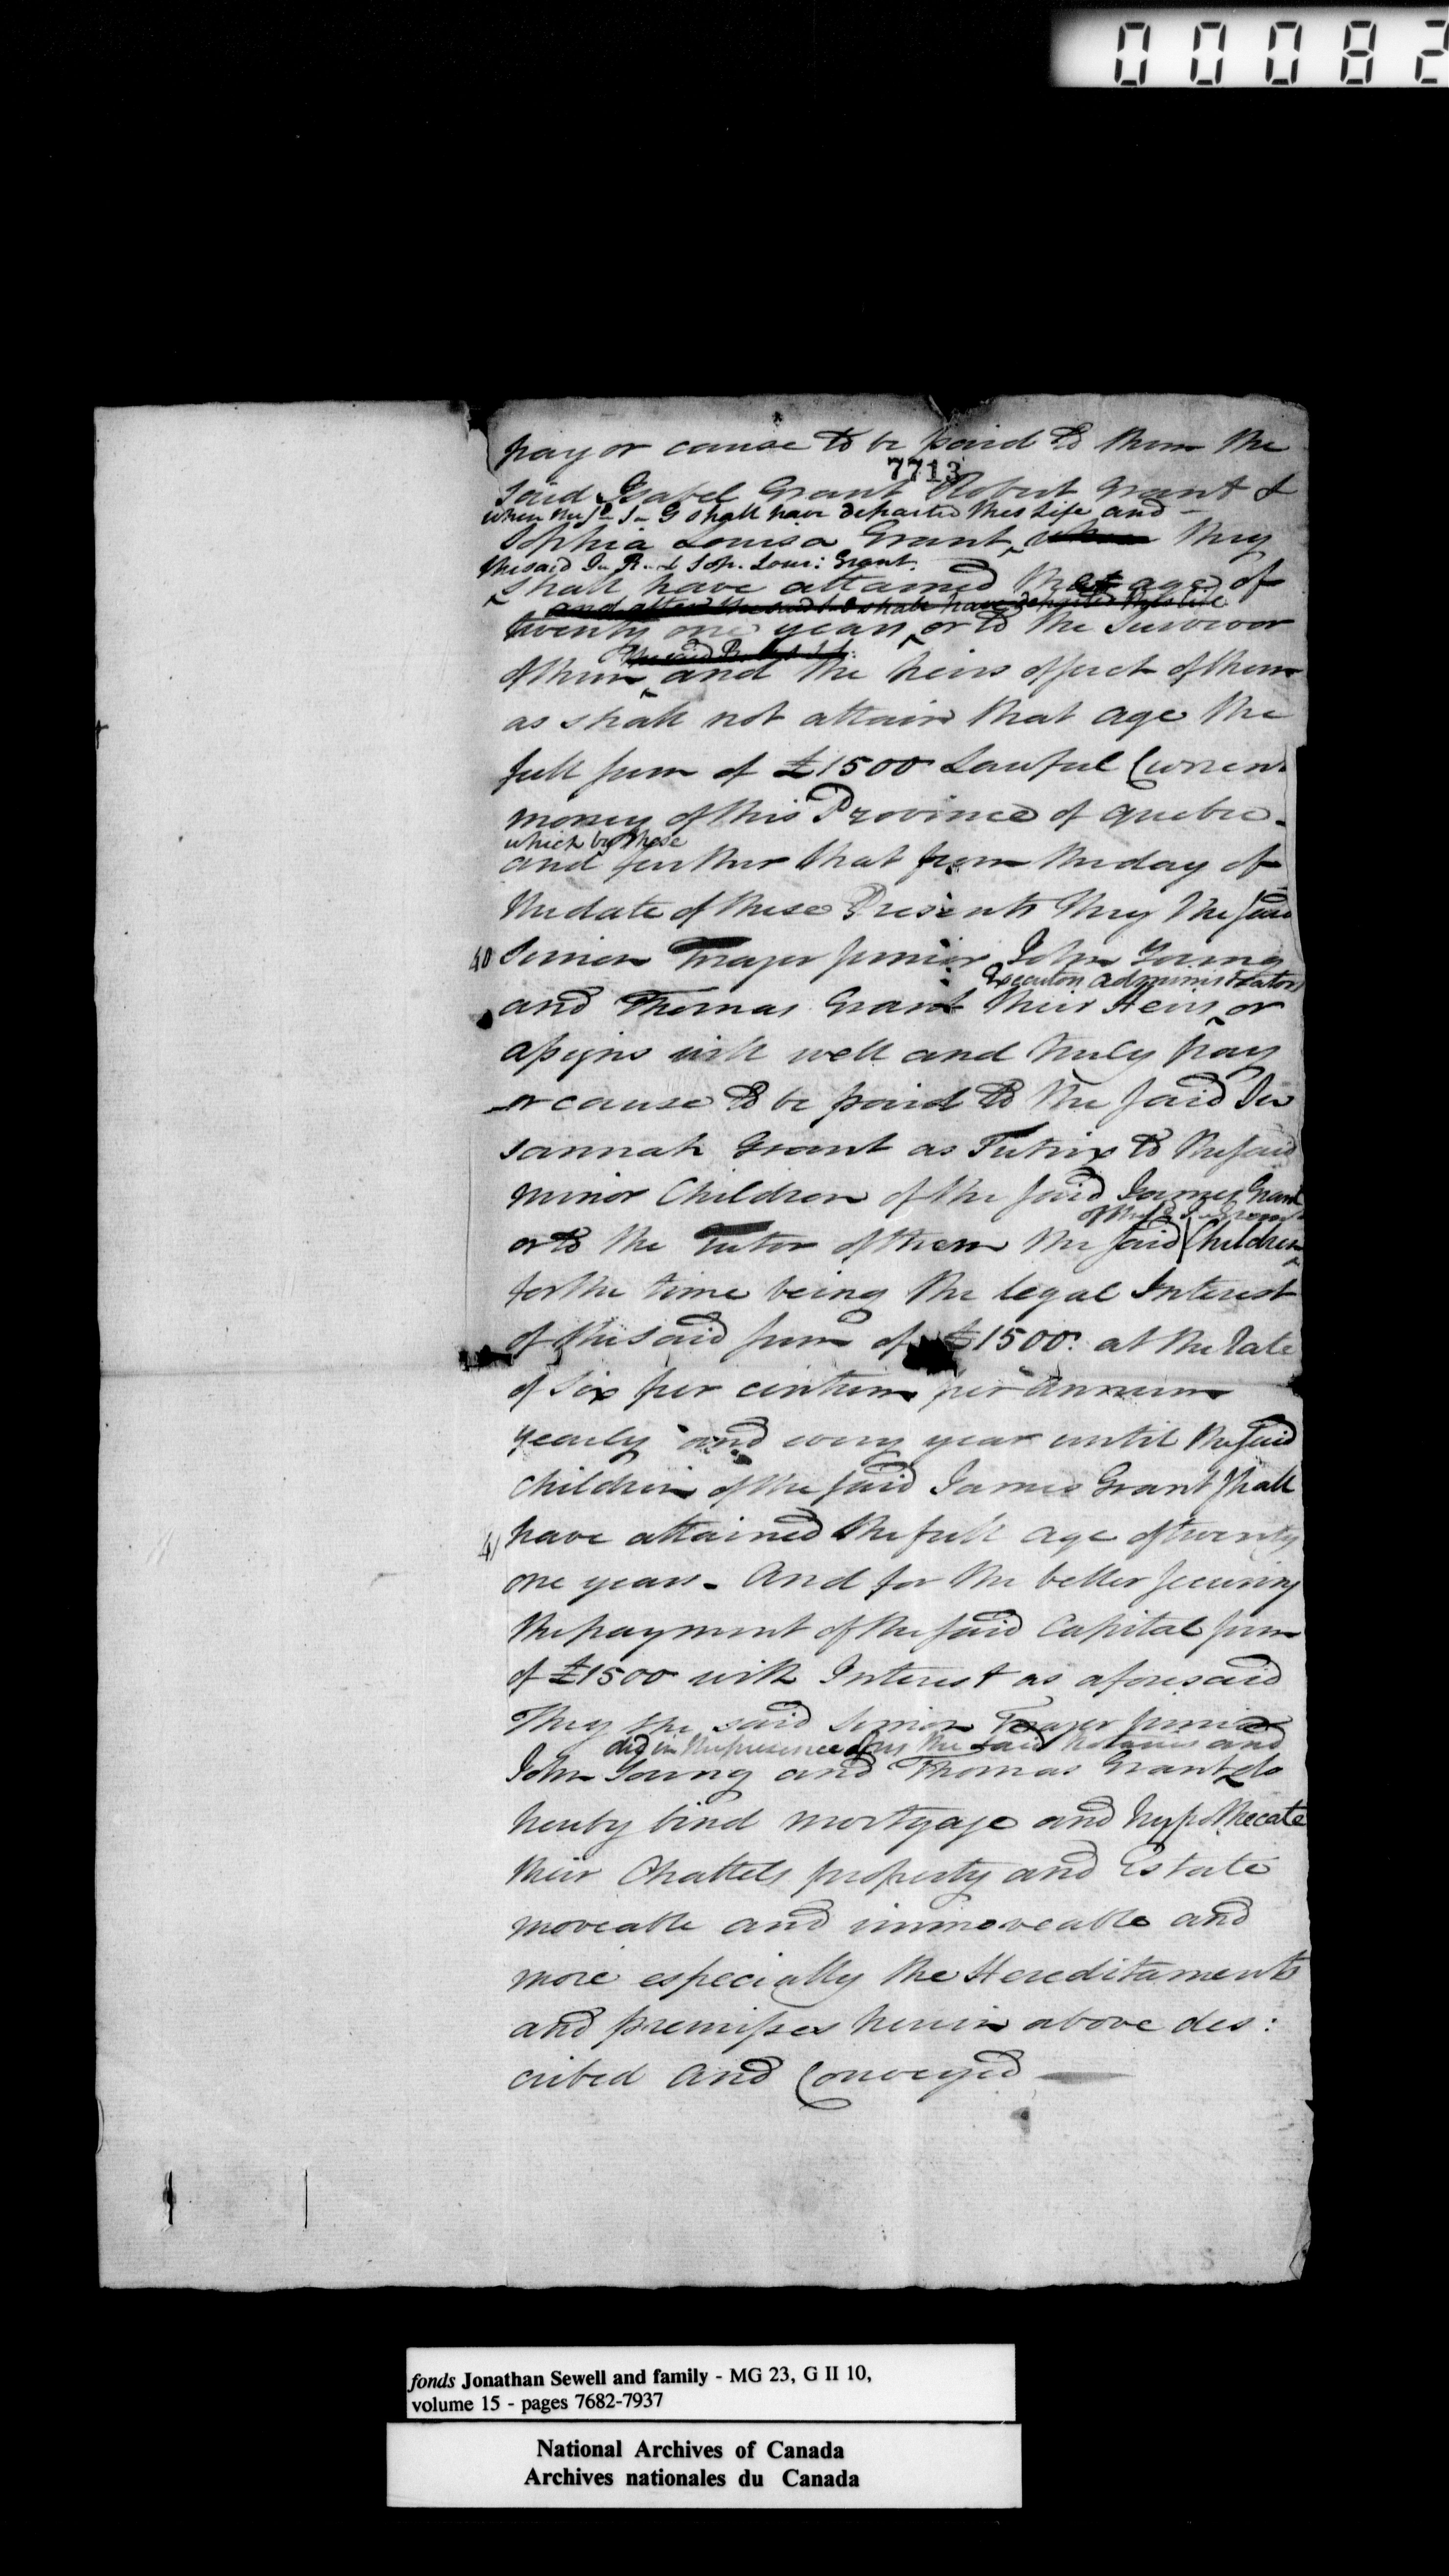 00082
pay or cause to be paid to them the
7713
said Isabel Grant Robert Grant &
when the sd. S– G shall have departed this life and
Sophia Louisa Grant, when they
the said I– R– & Soph. Loui: Grant.
shall have attained that age of
and after the said S. G shall have departed this life
twenty one years or to the Survivor
the said R.
of them and the heirs of such of them
as shall not attain that age the
full sum of £1500 Lawful Current
money of this Province of Quebec –
which by these
and further that from the day of
the date of these Presents they the said
40 Simon Frazer Junior John Young
Executors administrators
and Thomas Grant their Heirs or
assigns will well and truly pay
or cause to be paid to the said Su
sannah Grant as Tutrix to the said
minor Children of the said James Grant
of the sd.
or to the Tutor of them the said Children
for the time being the legal Interest
of the said sum of £1500. at the rate
of Six per centum per annum
yearly and every year until the said
children of the said James Grant shall
41 have attained the full age of twenty
one years – And for the better securing
the payment of the said Capital sum
of £1500 with Interest as aforesaid
They the said Simon Frazer Junior
did in the presence of us the said Notaries and
John Young and Thomas Grant do
hereby bind mortgage and hypothecate
their Chattels property and Estate
moveable and immoveable and
more especially the Hereditaments
and premises herein above des:
cribed and Conveyed —
fonds Jonathan Sewell and family - MG 23, G II 10,
volume 15 - pages 7682-7937
National Archives of Canada
Archives nationales du Canada